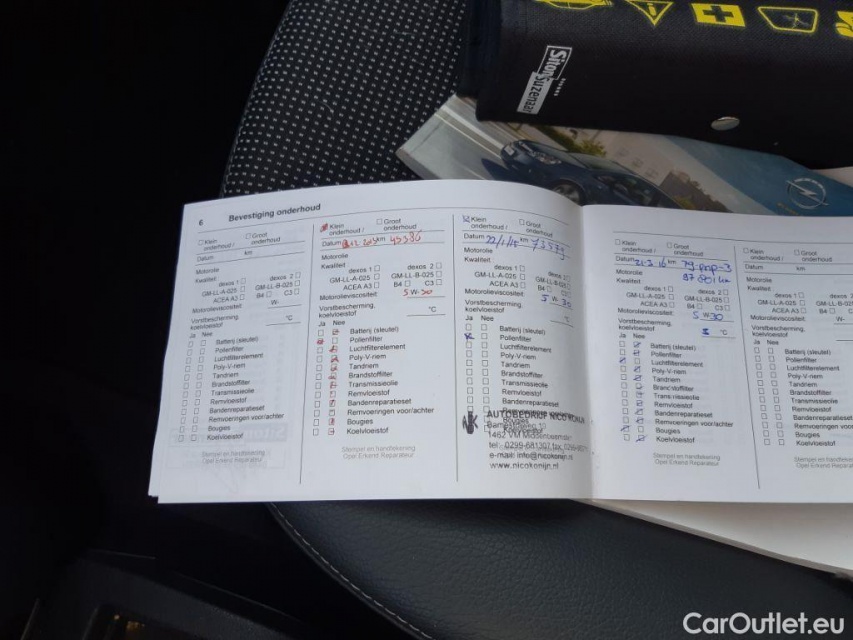 SitopSuzenaal
6 Bevestiging onderhoud
☐ Klein onderhoud / ☐ Groot onderhoud
Datum km
Motorolie
Kwaliteit:
dexos 1 ☐ dexos 2 ☐
GM-LL-A-025 ☐ GM-LL-B-025 ☐
ACEA A3 ☐ B4 ☐ C3 ☐
Motorolieviscositeit: W-
Vorstbescherming, koelvloeistof °C
Ja Nee
☐ ☐ Batterij (sleutel)
☐ ☐ Pollenfilter
☐ ☐ Luchtfilterelement
☐ ☐ Poly-V-riem
☐ ☐ Tandriem
☐ ☐ Brandstoffilter
☐ ☐ Transmissieolie
☐ ☐ Remvloeistof
☐ ☐ Bandenreparatieset
☐ ☐ Remvoeringen voor/achter
☐ ☐ Bougies
☐ ☐ Koelvloeistof
Stempel en handtekening
Opel Erkend Reparateur
Klein onderhoud / ☐ Groot onderhoud
Datum km 45536
Motorolie
Kwaliteit:
dexos 1 ☐ dexos 2 ☐
GM-LL-A-025 ☐ GM-LL-B-025 ☐
ACEA A3 ☐ B4 ☐ C3 ☐
Motorolieviscositeit: 5 W-30
Vorstbescherming, koelvloeistof °C
Ja Nee
Batterij (sleutel)
Pollenfilter
Luchtfilterelement
Poly-V-riem
Tandriem
Brandstoffilter
Transmissieolie
Remvloeistof
Bandenreparatieset
Remvoeringen voor/achter
Bougies
Koelvloeistof
Stempel en handtekening
Opel Erkend Reparateur
Klein onderhoud / ☐ Groot onderhoud
Datum 22/1/15 km
Motorolie
Kwaliteit:
dexos 1 ☐ dexos 2 ☐
GM-LL-A-025 ☐ GM-LL-B-025 ☐
ACEA A3 ☐ B4 ☐ C3 ☐
Motorolieviscositeit: 5 W-30
Vorstbescherming, koelvloeistof °C
Ja Nee
Batterij (sleutel)
Pollenfilter
Luchtfilterelement
Poly-V-riem
Tandriem
Brandstoffilter
Transmissieolie
Remvloeistof
Bandenreparatieset
AUTOBEDRIJF NICO KONIJN
1462 VM Middenbeemster
tel.: 0299-681307
e-mail: info@nicokonijn.nl
www.nicokonijn.nl
☐ Klein onderhoud / ☐ Groot onderhoud
Datum 21-3-16 km 79-pnp-3
Motorolie
Kwaliteit:
dexos 1 ☐ dexos 2 ☐
GM-LL-A-025 ☐ GM-LL-B-025 ☐
ACEA A3 ☐ B4 ☐ C3 ☐
Motorolieviscositeit: 5 W-30
Vorstbescherming, koelvloeistof °C
Ja Nee
Batterij (sleutel)
Pollenfilter
Luchtfilterelement
Poly-V-riem
Tandriem
Brandstoffilter
Transmissieolie
Remvloeistof
Bandenreparatieset
Remvoeringen voor/achter
Bougies
Koelvloeistof
Stempel en handtekening
Opel Erkend Reparateur
☐ Klein onderhoud / ☐ Groot onderhoud
Datum km
Motorolie
Kwaliteit:
dexos 1 ☐
GM-LL-A-025 ☐
ACEA A3 ☐
Motorolieviscositeit:
Vorstbescherming, koelvloeistof
Ja Nee
☐ ☐ Batterij (sleutel)
☐ ☐ Pollenfilter
☐ ☐ Luchtfilterelement
☐ ☐ Poly-V-riem
☐ ☐ Tandriem
☐ ☐ Brandstoffilter
☐ ☐ Transmissieolie
☐ ☐ Remvloeistof
☐ ☐ Bandenreparatieset
☐ ☐ Remvoeringen
☐ ☐ Bougies
☐ ☐ Koelvloeistof
Stempel en handtekening
Opel Erkend Reparateur
CarOutlet.eu